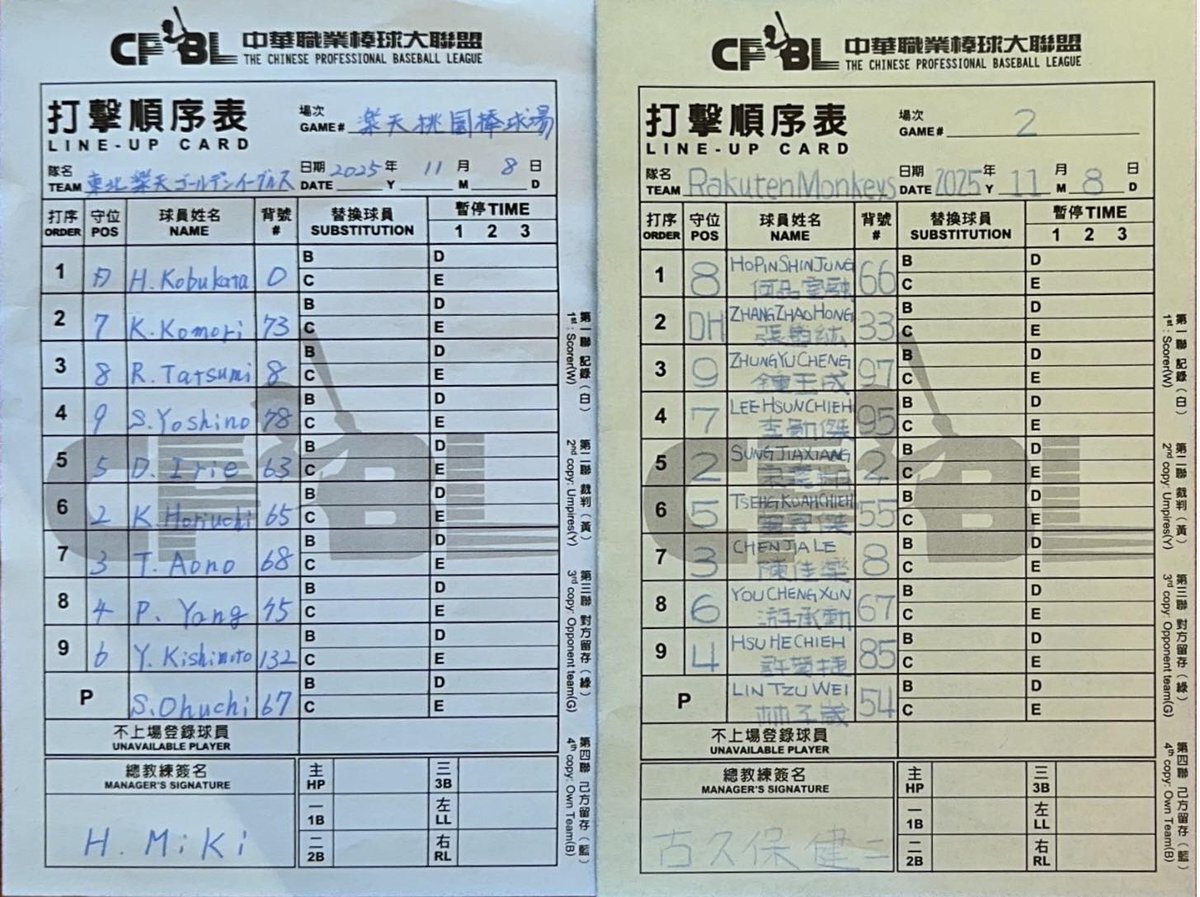 CPBL 中華職業棒球大聯盟
THE CHINESE PROFESSIONAL BASEBALL LEAGUE
打擊順序表
LINE-UP CARD
場次 GAME# 楽天桃園棒球場
隊名 TEAM 東北楽天ゴールデンイーグルス
日期 DATE 2025 年 Y 11 月 M 8 日 D
打序 ORDER 守位 POS 球員姓名 NAME 背號 # 替換球員 SUBSTITUTION 暫停 TIME 1 2 3
1 D H. Kobukata 0 B C D E
2 7 K. Komori 73 B C D E
3 8 R. Tatsumi 8 B C D E
4 9 S. Yoshino 78 B C D E
5 5 D. Irie 63 B C D E
6 2 K. Horiuchi 65 B C D E
7 3 T. Aono 68 B C D E
8 4 P. Yang 45 B C D E
9 6 Y. Kishimoto 132 B C D E
P S. Ohuchi 67 B C D E
不上場登錄球員
UNAVAILABLE PLAYER
總教練簽名
MANAGER'S SIGNATURE
H. Miki
主 HP 三 3B
一 1B 左 LL
二 2B 右 RL
第一聯 記錄(白)
1st : Scorer(W)
第二聯 裁判(黃)
2nd copy: Umpires(Y)
第三聯 對方留存(綠)
3rd copy: Opponent team(G)
第四聯 己方留存(藍)
4th copy: Own Team(B)
CPBL 中華職業棒球大聯盟
THE CHINESE PROFESSIONAL BASEBALL LEAGUE
打擊順序表
LINE-UP CARD
場次 GAME# 2
隊名 TEAM Rakuten Monkeys
日期 DATE 2025 年 Y 11 月 M 8 日 D
打序 ORDER 守位 POS 球員姓名 NAME 背號 # 替換球員 SUBSTITUTION 暫停 TIME 1 2 3
1 8 HOPINSHINJUNG 66 B C D E
何品室融
2 DH ZHANGZHAOHONG 33 B C D E
3 9 ZHUNGYUCHENG 97 B C D E
鍾玉成
4 7 LEE HSUNCHIEH 95 B C D E
李勛傑
5 2 SUNGJIAXIANG 2 B C D E
宋嘉翔
6 5 TSENG KUAHCHIEH 55 B C D E
7 3 CHENJIALE 8 B C D E
陳佳樂
8 6 YOU CHENG XUN 67 B C D E
游承勳
9 4 HSU HECHIEH 85 B C D E
P LIN TZU WEI 54 B C D E
林子崴
不上場登錄球員
UNAVAILABLE PLAYER
總教練簽名
MANAGER'S SIGNATURE
古久保健二
主 HP 三 3B
一 1B 左 LL
二 2B 右 RL
第一聯 記錄(白)
1st : Scorer(W)
第二聯 裁判(黃)
2nd copy: Umpires(Y)
第三聯 對方留存(綠)
3rd copy: Opponent team(G)
第四聯 己方留存(藍)
4th copy: Own Team(B)